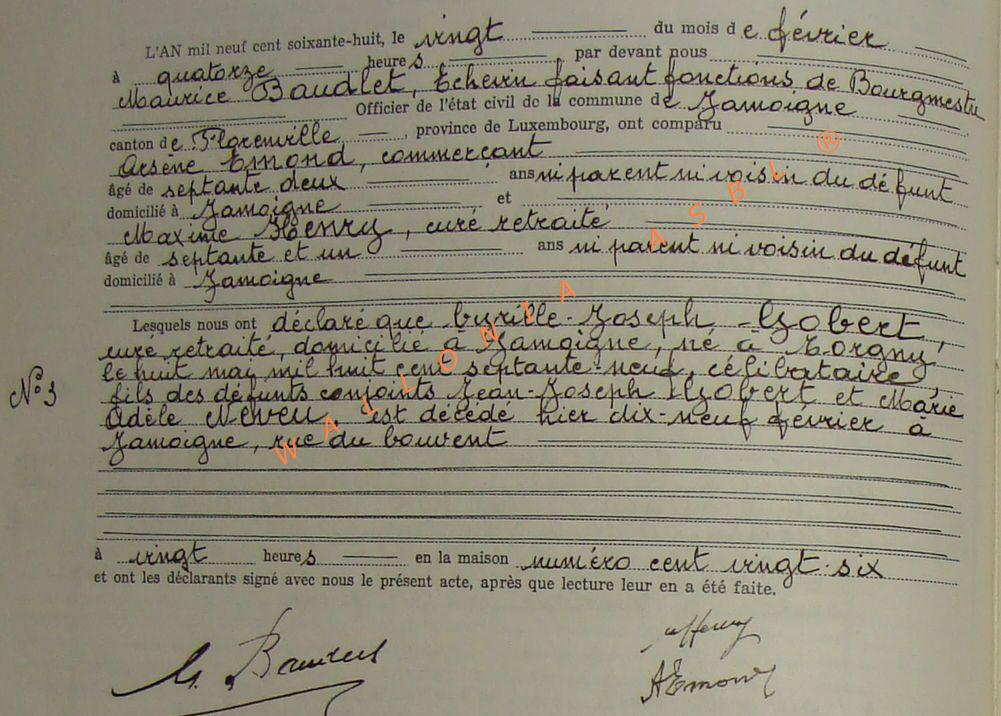 L'AN mil neuf cent soixante-huit, le vingt du mois de février
à quatorze heures par devant nous
Maurice Baudlet, Echevin faisant fonctions de Bourgmestre
Officier de l'état civil de la commune de Jamoigne
canton de Florenville, province de Luxembourg, ont comparu
Arsène Emond, commerçant
âgé de septante deux ans ni parent ni voisin du défunt
domicilié à Jamoigne et
Maxime Henry, curé retraité
âgé de septante et un ans ni parent ni voisin du défunt
domicilié à Jamoigne
Lesquels nous ont déclaré que Cyrille-Joseph, Gobert,
curé retraité, domicilié à Jamoigne, né à Torgny,
le huit mai mil huit cent septante-neuf, célibataire,
N° 3
fils des défunts conjoints Jean-Joseph Gobert et Marie
Odèle Neveu, est décédé hier dix-neuf février à
Jamoigne, rue du Couvent
WALLONIA ASBL ®
à vingt heures en la maison numéro cent vingt six
et ont les déclarants signé avec nous le présent acte, après que lecture leur en a été faite.
MHenry
AEmond